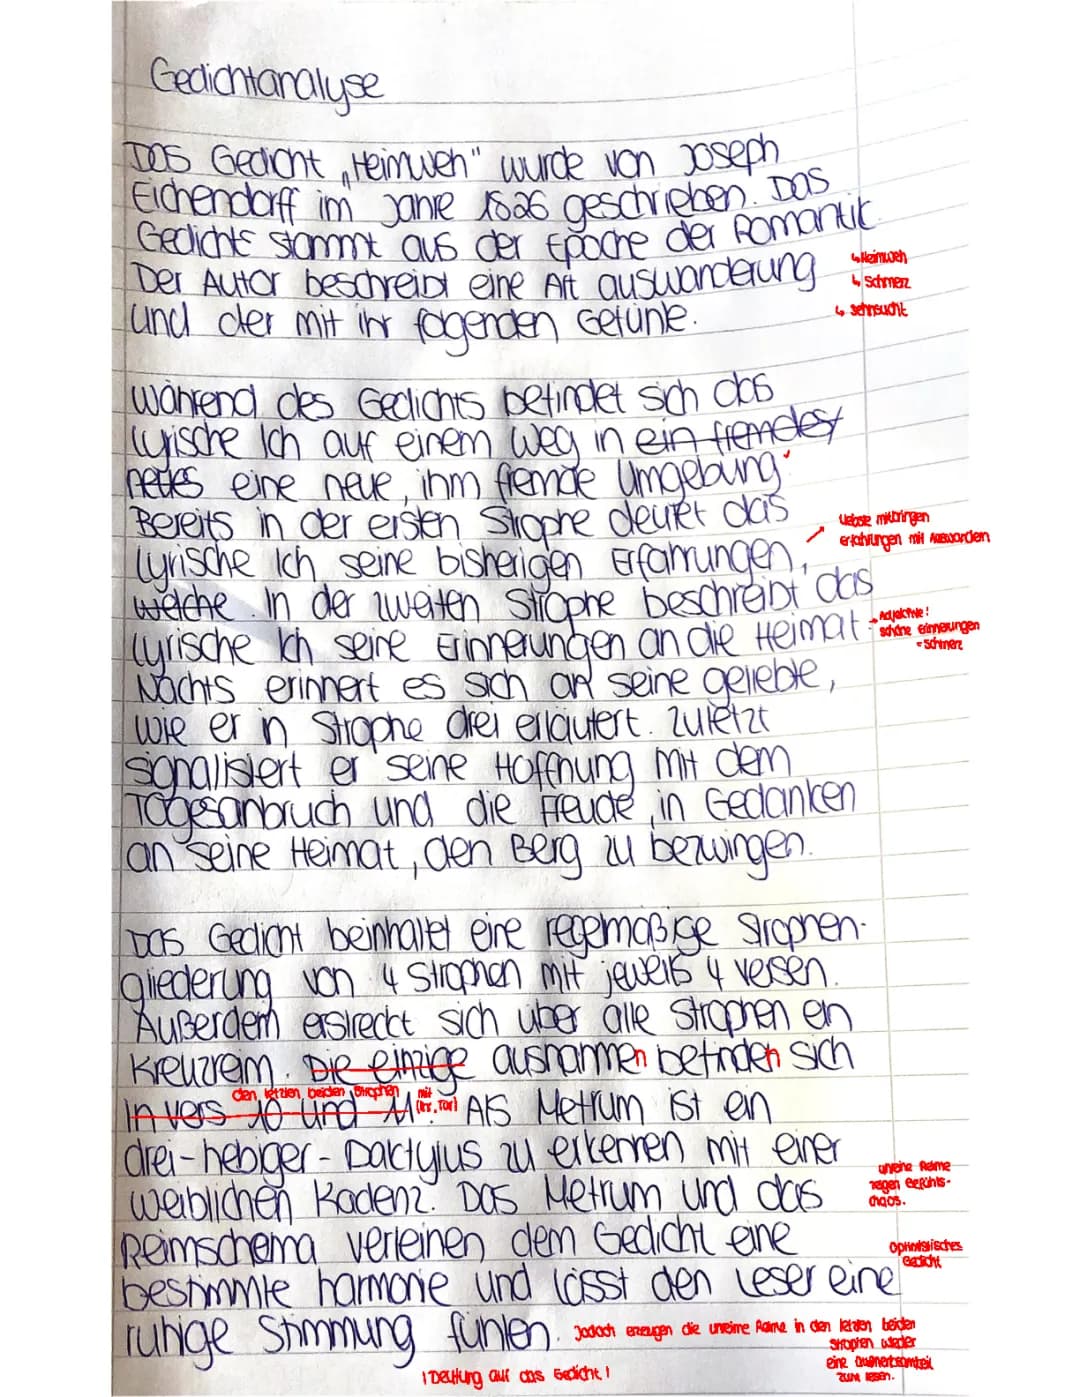 Gedichtanalyse
Das Gedicht „Heimweh" wurde von Joseph
Eichendorff im Jahre 1826 geschrieben. Das
Gedichts stammt aus der Epoche der Romantik.
Der Autor beschreibt eine Art auswanderung
und der mit ihr folgenden Gefühle.
↳ Heimweh
↳ Schmerz
↳ Sehnsucht
Während des Gedichts befindet sich das
lyrische Ich auf einem Weg in ein fremdes
neues eine neue, ihm fremde Umgebung.
Bereits in der ersten Strophe deutet das
lyrische Ich seine bisherigen Erfahrungen,
Liebste mitbringen
erfahrungen mit Auswandern
welche. In der zweiten Strophe beschreibt das
lyrische Ich seine Erinnerungen an die Heimat.
Adjektive!
schöne Erinnerungen
= Schmerz
Nachts erinnert es sich an seine geliebte,
wie er in Strophe drei erläutert. Zuletzt
signalisiert er seine Hoffnung mit dem
Tagesanbruch und die Freude, in Gedanken
an seine Heimat, den Berg zu bezwingen.
Das Gedicht beinhaltet eine regemäßige Strophen-
gliederung von 4 Strophen mit jeweils 4 Versen.
Außerdem erstreckt sich über alle Strophen ein
Kreuzreim. Die einzige ausnahmen befinden sich
den letzten beiden Strophen mit
in Vers 10 und 11. Als Metrum ist ein
drei-hebiger-Daktylus zu erkennen mit einer
weiblichen Kadenz. Das Metrum und das
unreine Reime
zeigen Gefühls-
chaos.
Reimschema verleihen dem Gedicht eine
Optimistisches
Gedicht
bestimmte harmonie und lässt den Leser eine
ruhige Stimmung fühlen.
Jedoch erzeugen die unreine Reime in den letzten beiden
Strophen wieder
eine Aufmerksamkeit
zum lesen.
! Deutung auf das Gedicht !